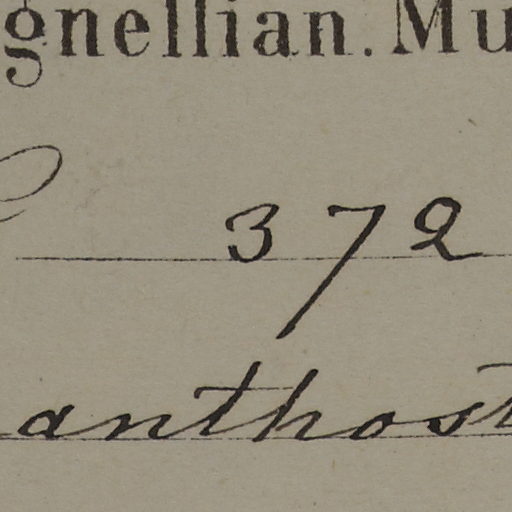 gnellian. Mu
372
anthost